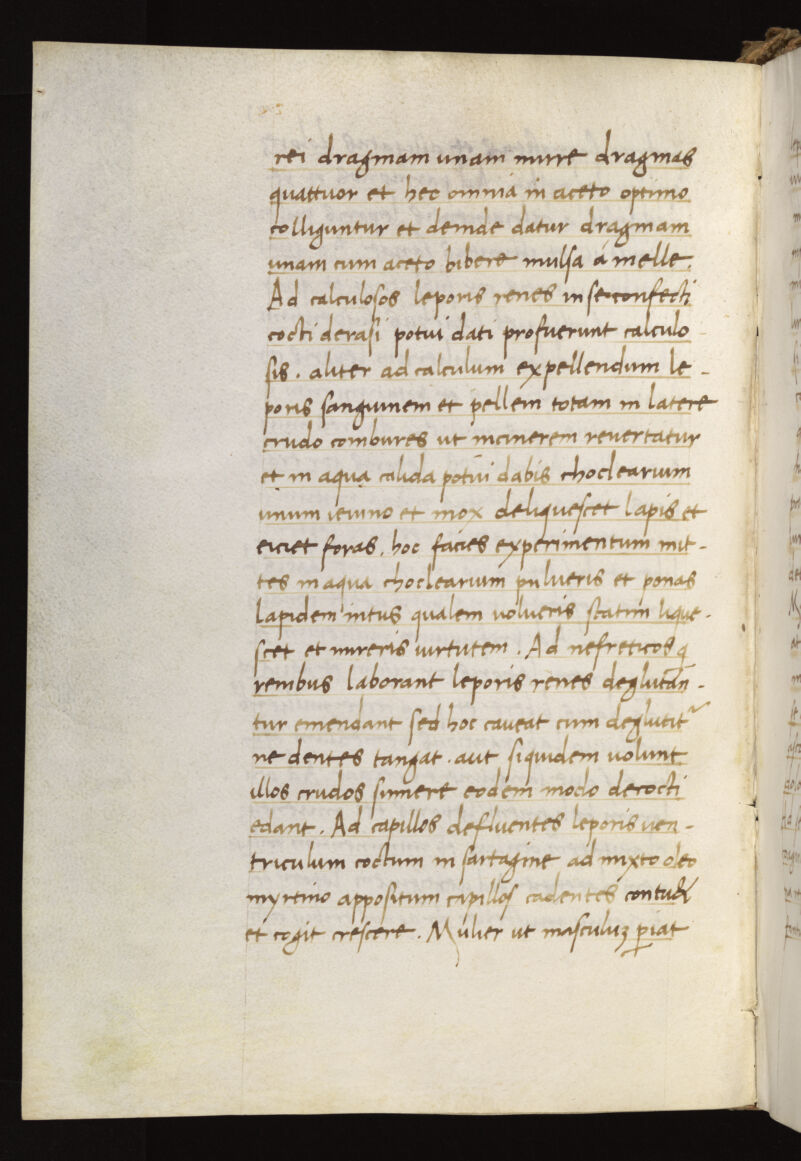 rei dragmam unam mirre dragmas
quattuor et hec omnia in aceto optimo
colliguntur et deinde datur dragmam
unam cum aceto bibere mulsa á melle.
Ad calculosos leporis renes in se confecti
cocti derasi potui dati profuerunt calculo
sis. aliter ad calculum expellendum le-
poris sanguinem et pellem totam in latere
crudo combures ut incinerem revertatur
et in aqua calida potui dabis choclearium
unum ieiuno et mox deliquescet lapis et
eiciet foras. hoc facies experimentum mit-
tes in aqua choclearium pulveris et ponas
lapidem intus qualem volueris statim lique-
scet et mireris virtutem. Ad nefreticos q̄
renibus laborant leporis renes deglutan-
tur emendant sed hoc caveat cum deglutit᷑
ne dentes tangat. aut siquidem volunt
illos crudos sumere eodem modo decocti
edant. Ad capillos defluentes leporis ven-
triculum coctum in sartagine ad mixto oleo
myrtino appositum capillos cadentes
et cogit crescere. Mulier ut masculuȝ ꝑiat